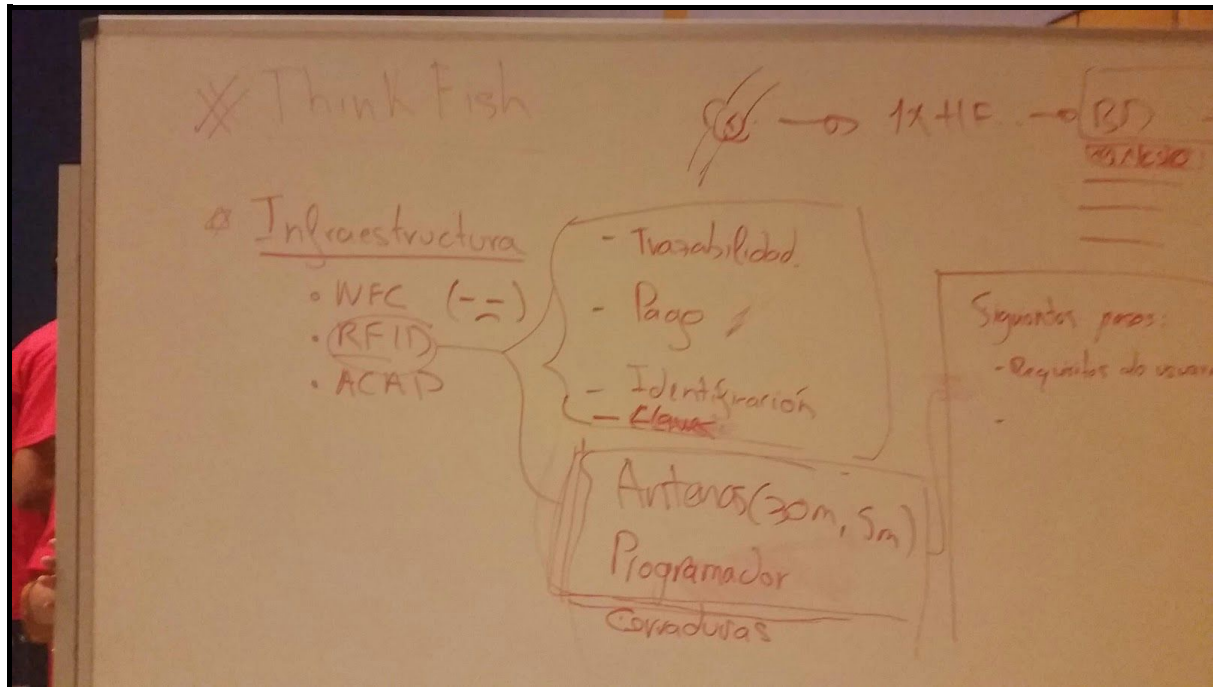 Think Fish
1x HF
BD
Infraestructura
• NFC (--)
• RFID
• ACAD
- Trazabilidad.
- Pago
- Identificación
- Llaves
Antenas (30m, 5m)
Programador
Cerraduras
Siguientes pasos:
- Requisitos de
-